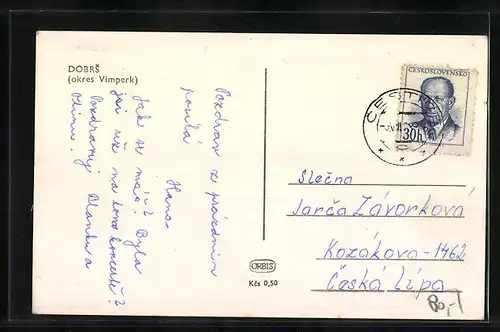 DOBRŠ
(okres Vimperk)
Pozdrav z prázdnin
posílá
Hana.
Jak se máš? Byla
jsi už na koncertě?
Pozdravuj Blanku a
ČESKOSLOVENSKO
30h
Slečna
Jarča Závorková
Kozákova-1462
Česká Lípa
ORBIS
Kčs 0,50
80,-